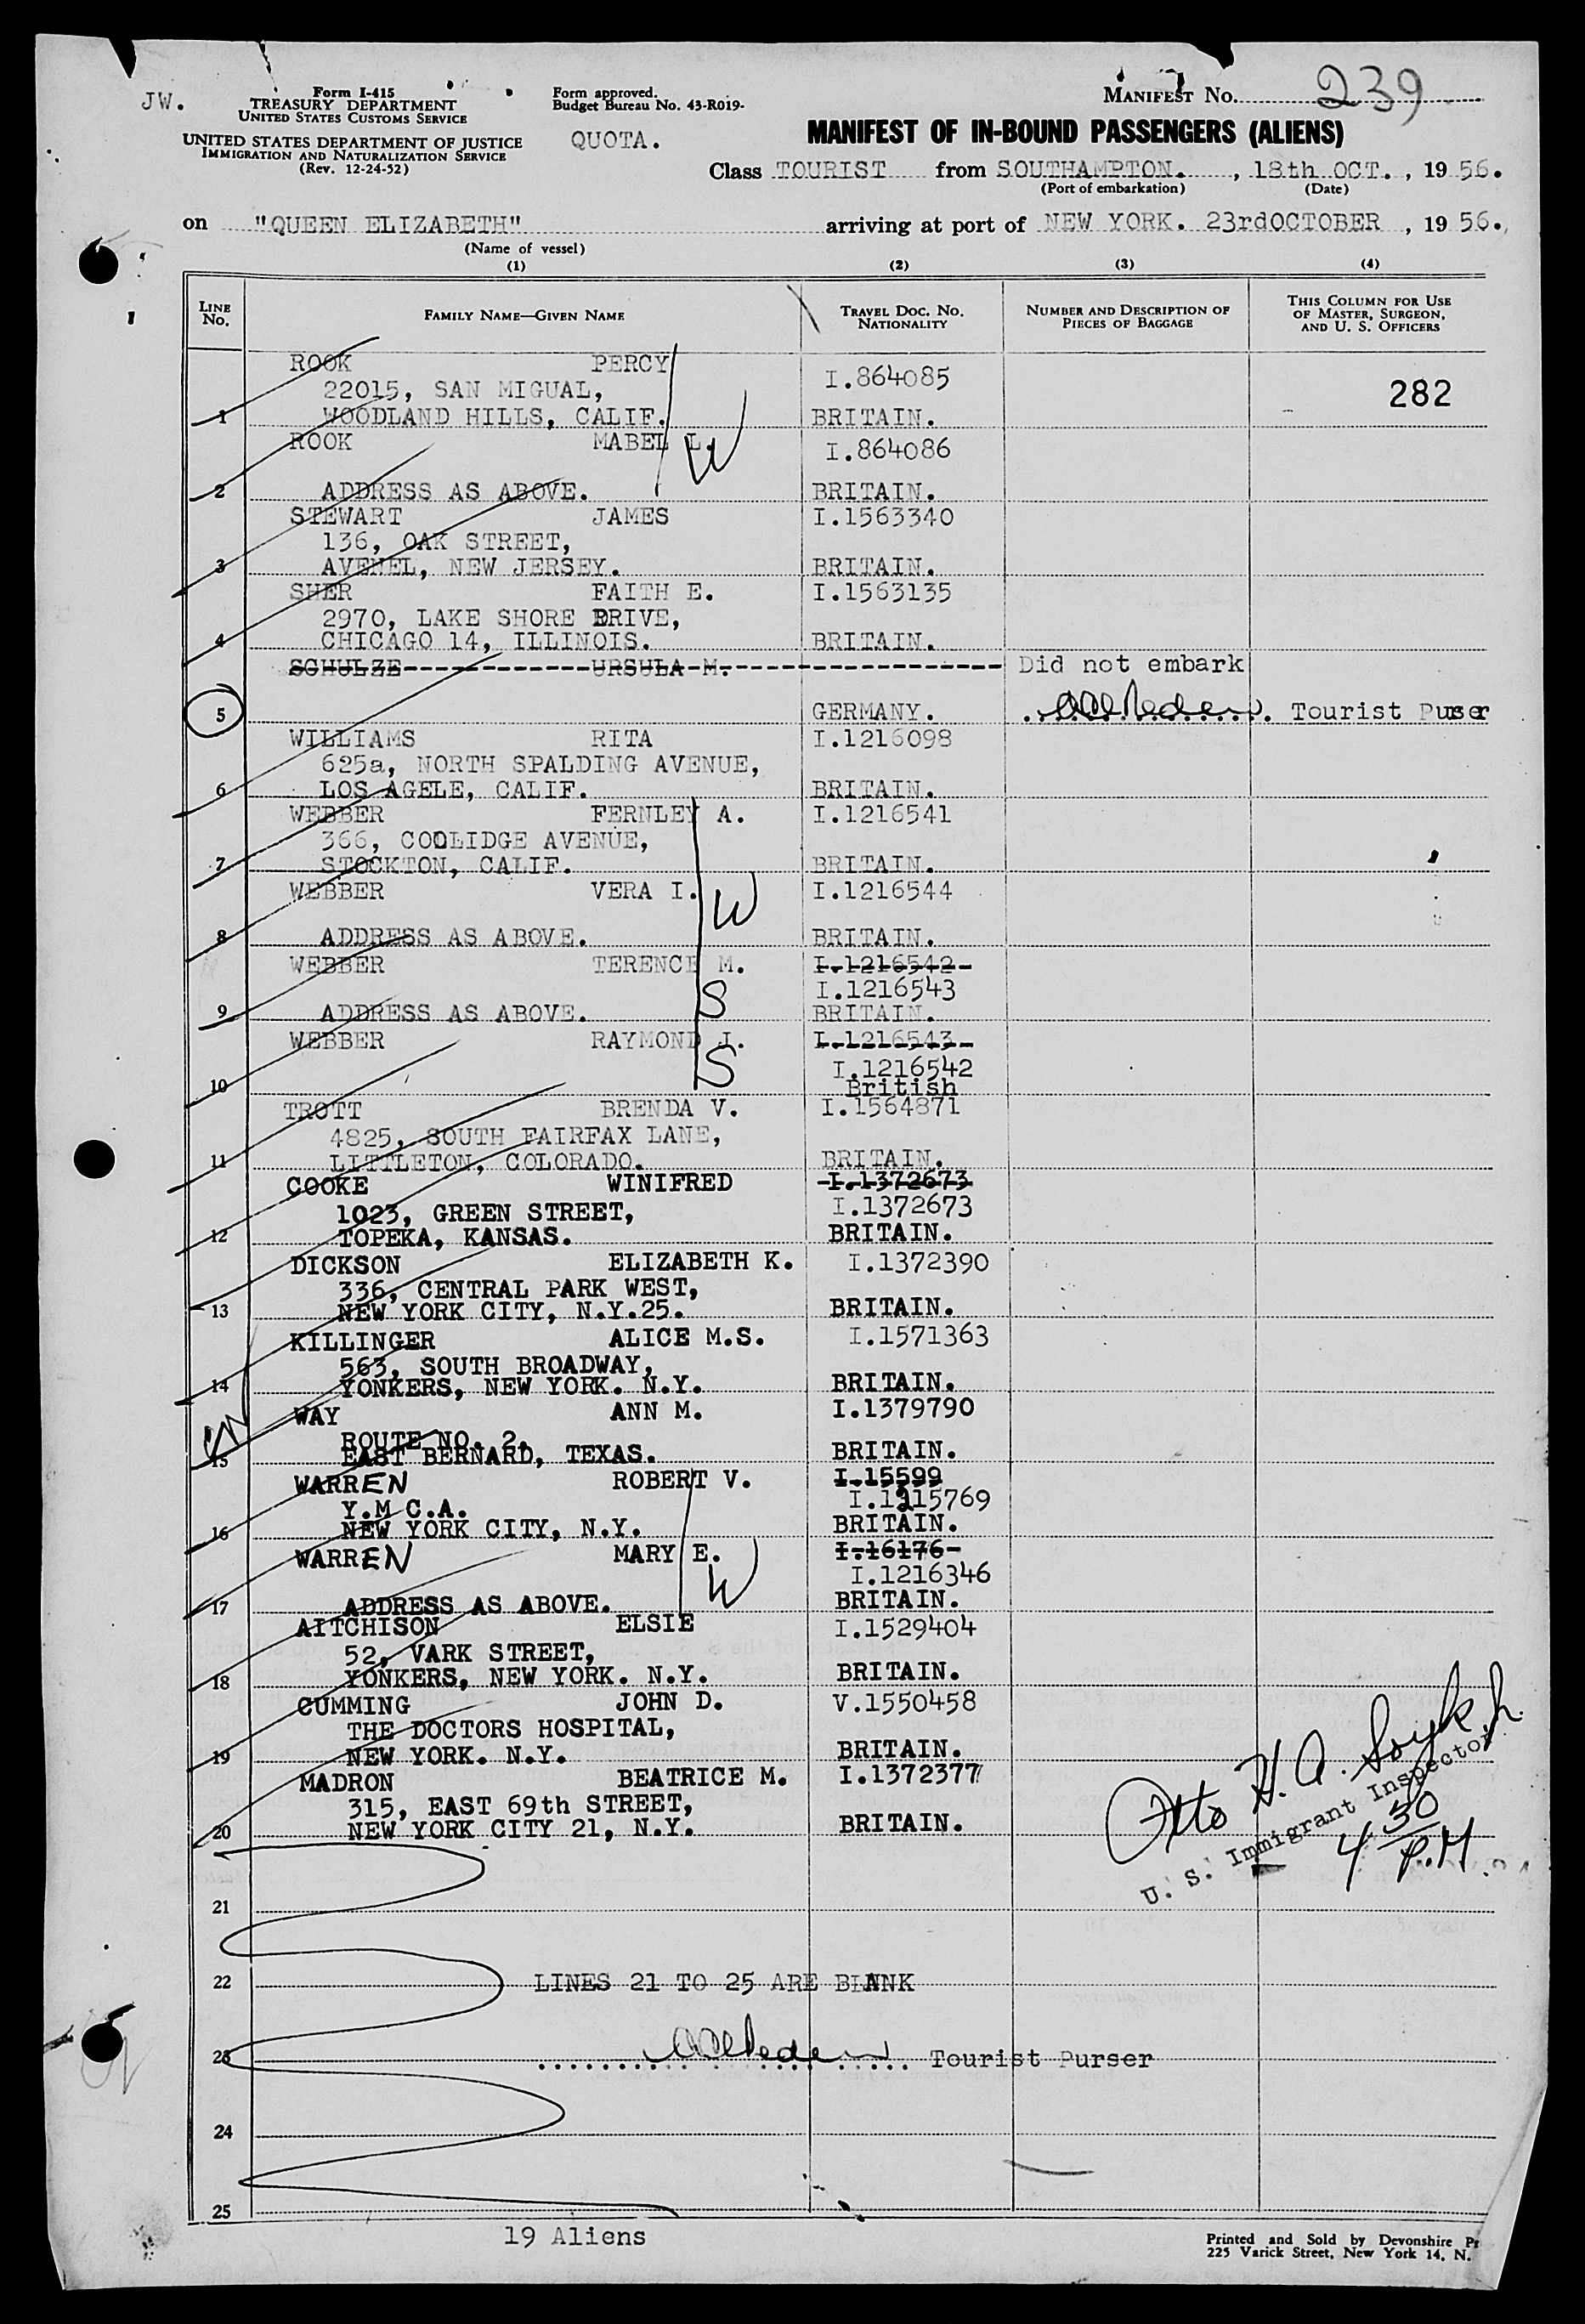 JW.
Form I-415
TREASURY DEPARTMENT
UNITED STATES CUSTOMS SERVICE
UNITED STATES DEPARTMENT OF JUSTICE
IMMIGRATION AND NATURALIZATION SERVICE
(Rev. 12-24-52)
Form approved.
Budget Bureau No. 43-R019-
QUOTA.
MANIFEST No. 239
MANIFEST OF IN-BOUND PASSENGERS (ALIENS)
Class TOURIST from SOUTHAMPTON. , 18th OCT. , 19 56.
(Port of embarkation) (Date)
on "QUEEN ELIZABETH" arriving at port of NEW YORK. 23rdOCTOBER , 19 56.
(Name of vessel)
(1) (2) (3) (4)
LINE No. FAMILY NAME—GIVEN NAME TRAVEL DOC. NO. NATIONALITY NUMBER AND DESCRIPTION OF PIECES OF BAGGAGE THIS COLUMN FOR USE OF MASTER, SURGEON, AND U. S. OFFICERS
ROOK PERCY I.864085
22015, SAN MIGUAL, 282
1 WOODLAND HILLS, CALIF. BRITAIN.
ROOK MABEL L. W I.864086
2 ADDRESS AS ABOVE. BRITAIN.
STEWART JAMES I.1563340
136, OAK STREET,
3 AVENEL, NEW JERSEY. BRITAIN.
SHER FAITH E. I.1563135
2970, LAKE SHORE DRIVE,
4 CHICAGO 14, ILLINOIS. BRITAIN.
SCHULZE URSULA M. Did not embark
5 GERMANY. Tourist Purser
WILLIAMS RITA I.1216098
625a, NORTH SPALDING AVENUE,
6 LOS AGELE, CALIF. BRITAIN.
WEBBER FERNLEY A. I.1216541
366, COOLIDGE AVENUE,
7 STOCKTON, CALIF. BRITAIN.
WEBBER VERA I. W I.1216544
8 ADDRESS AS ABOVE. BRITAIN.
WEBBER TERENCE M. I.1216542
S I.1216543
9 ADDRESS AS ABOVE. BRITAIN.
WEBBER RAYMOND J. I.1216543
S I.1216542
10 British
TROTT BRENDA V. I.1564871
4825, SOUTH FAIRFAX LANE,
11 LITTLETON, COLORADO. BRITAIN.
COOKE WINIFRED I.1372673
1023, GREEN STREET, I.1372673
12 TOPEKA, KANSAS. BRITAIN.
DICKSON ELIZABETH K. I.1372390
336, CENTRAL PARK WEST,
13 NEW YORK CITY, N.Y.25. BRITAIN.
KILLINGER ALICE M.S. I.1571363
563, SOUTH BROADWAY,
14 YONKERS, NEW YORK. N.Y. BRITAIN.
WAY ANN M. I.1379790
ROUTE NO. 2,
15 EAST BERNARD, TEXAS. BRITAIN.
WARREN ROBERT V. I.15599
Y.M C.A. I.1215769
16 NEW YORK CITY, N.Y. BRITAIN.
WARREN MARY E. I.16176
W I.1216346
17 ADDRESS AS ABOVE. BRITAIN.
AITCHISON ELSIE I.1529404
52, VARK STREET,
18 YONKERS, NEW YORK. N.Y. BRITAIN.
CUMMING JOHN D. V.1550458
THE DOCTORS HOSPITAL,
19 NEW YORK. N.Y. BRITAIN.
MADRON BEATRICE M. I.1372377
315, EAST 69th STREET,
20 NEW YORK CITY 21, N.Y. BRITAIN.
Otto H. A.
U. S. Immigrant Inspector
4 30 P.M.
21
22 LINES 21 TO 25 ARE BLANK
23 Tourist Purser
24
25
19 Aliens
Printed and Sold by Devonshire
225 Varick Street, New York 14, N.